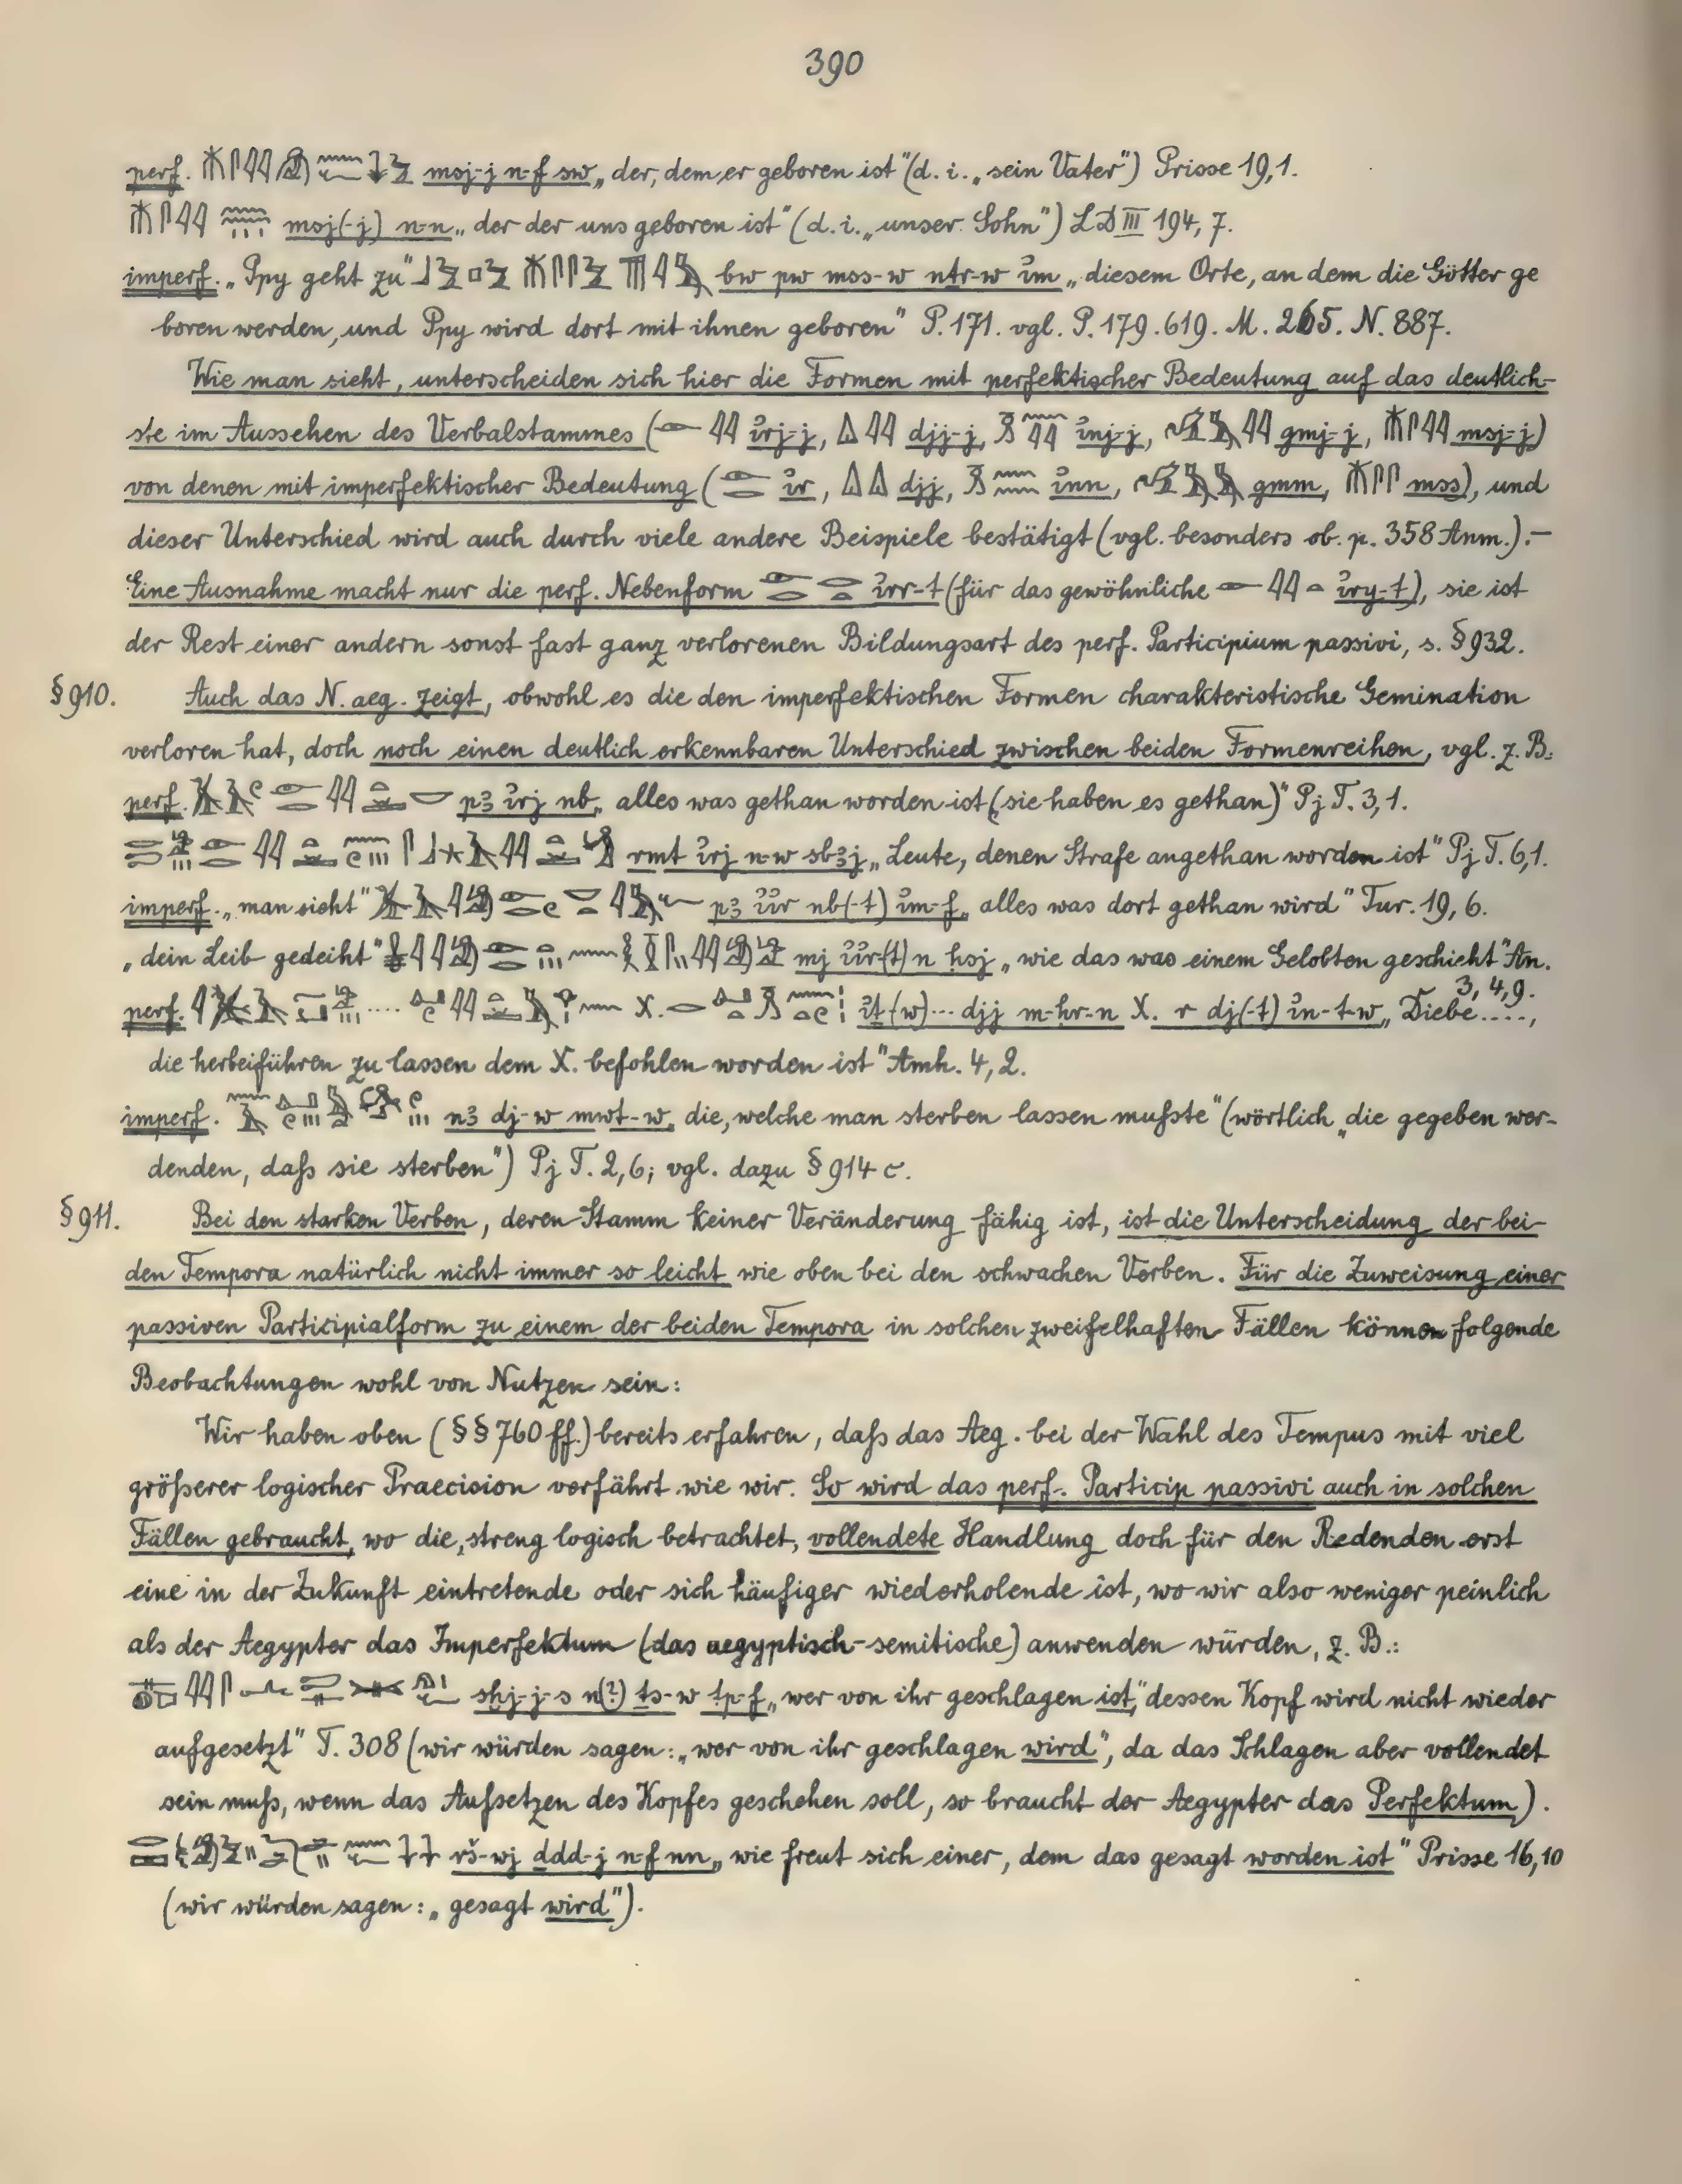 390
perf. msj-j n-f sw „der, dem er geboren ist" (d. i. „sein Vater") Prisse 19,1.
msj(-j) n-n „der der uns geboren ist" (d. i. „unser Sohn") LD III 194, 7.
imperf. „Ppy geht zu" bw pw mss-w nṯr-w ỉm „diesem Orte, an dem die Götter ge
boren werden, und Ppy wird dort mit ihnen geboren" P. 171. vgl. P. 179. 619. M. 265. N. 887.
Wie man sieht, unterscheiden sich hier die Formen mit perfektischer Bedeutung auf das deutlich-
ste im Aussehen des Verbalstammes ( ỉrj-j, djj-j, ỉnj-j, gmj-j, msj-j)
von denen mit imperfektischer Bedeutung ( ỉr, djj, ỉnn, gmm, mss), und
dieser Unterschied wird auch durch viele andere Beispiele bestätigt (vgl. besonders ob. p. 358 Anm.). –
Eine Ausnahme macht nur die perf. Nebenform ỉrr-t (für das gewöhnliche ỉry-t), sie ist
der Rest einer andern sonst fast ganz verlorenen Bildungsart des perf. Participium passivi, s. § 932.
§ 910. Auch das N. aeg. zeigt, obwohl es die den imperfektischen Formen charakteristische Gemination
verloren hat, doch noch einen deutlich erkennbaren Unterschied zwischen beiden Formenreihen, vgl. z. B.
perf. pꜣ ỉrj nb „alles was gethan worden ist (sie haben es gethan)" Pj T. 3, 1.
rmt ỉrj n-w sbꜣj „Leute, denen Strafe angethan worden ist" Pj T. 6, 1.
imperf. „man sieht" pꜣ ỉỉr nb(-t) ỉm-f „alles was dort gethan wird" Tur. 19, 6.
„dein Leib gedeiht" mj ỉỉr-(t) n ḥsj „wie das was einem Gelobten geschieht" An.
3, 4, 9.
perf. ỉṯ(w)... djj m-ḥr-n X. r dj(-t) ỉn-t-w „Diebe....,
die herbeiführen zu lassen dem X. befohlen worden ist" Amh. 4, 2.
imperf. nꜣ dj-w mwt-w „die, welche man sterben lassen mußste" (wörtlich „die gegeben wer-
denden, daß sie sterben") Pj T. 2, 6; vgl. dazu § 914 c.
§ 911. Bei den starken Verben, deren Stamm keiner Veränderung fähig ist, ist die Unterscheidung der bei-
den Tempora natürlich nicht immer so leicht wie oben bei den schwachen Verben. Für die Zuweisung einer
passiven Participialform zu einem der beiden Tempora in solchen zweifelhaften Fällen können folgende
Beobachtungen wohl von Nutzen sein:
Wir haben oben (§§ 760 ff.) bereits erfahren, daß das Aeg. bei der Wahl des Tempus mit viel
größerer logischer Praecision verfährt wie wir. So wird das perf. Particip passivi auch in solchen
Fällen gebraucht, wo die, streng logisch betrachtet, vollendete Handlung doch für den Redenden erst
eine in der Zukunft eintretende oder sich häufiger wiederholende ist, wo wir also weniger peinlich
als der Aegypter das Imperfektum (das aegyptisch-semitische) anwenden würden, z. B.:
sḫj-j-s n(?) ṯs-w tp-f „wer von ihr geschlagen ist," dessen Kopf wird nicht wieder
aufgesetzt" T. 308 (wir würden sagen: „wer von ihr geschlagen wird", da das Schlagen aber vollendet
sein muß, wenn das Aufsetzen des Kopfes geschehen soll, so braucht der Aegypter das Perfektum).
rš-wj ḏdd-j n-f nn „wie freut sich einer, dem das gesagt worden ist" Prisse 16, 10
(wir würden sagen: „gesagt wird").